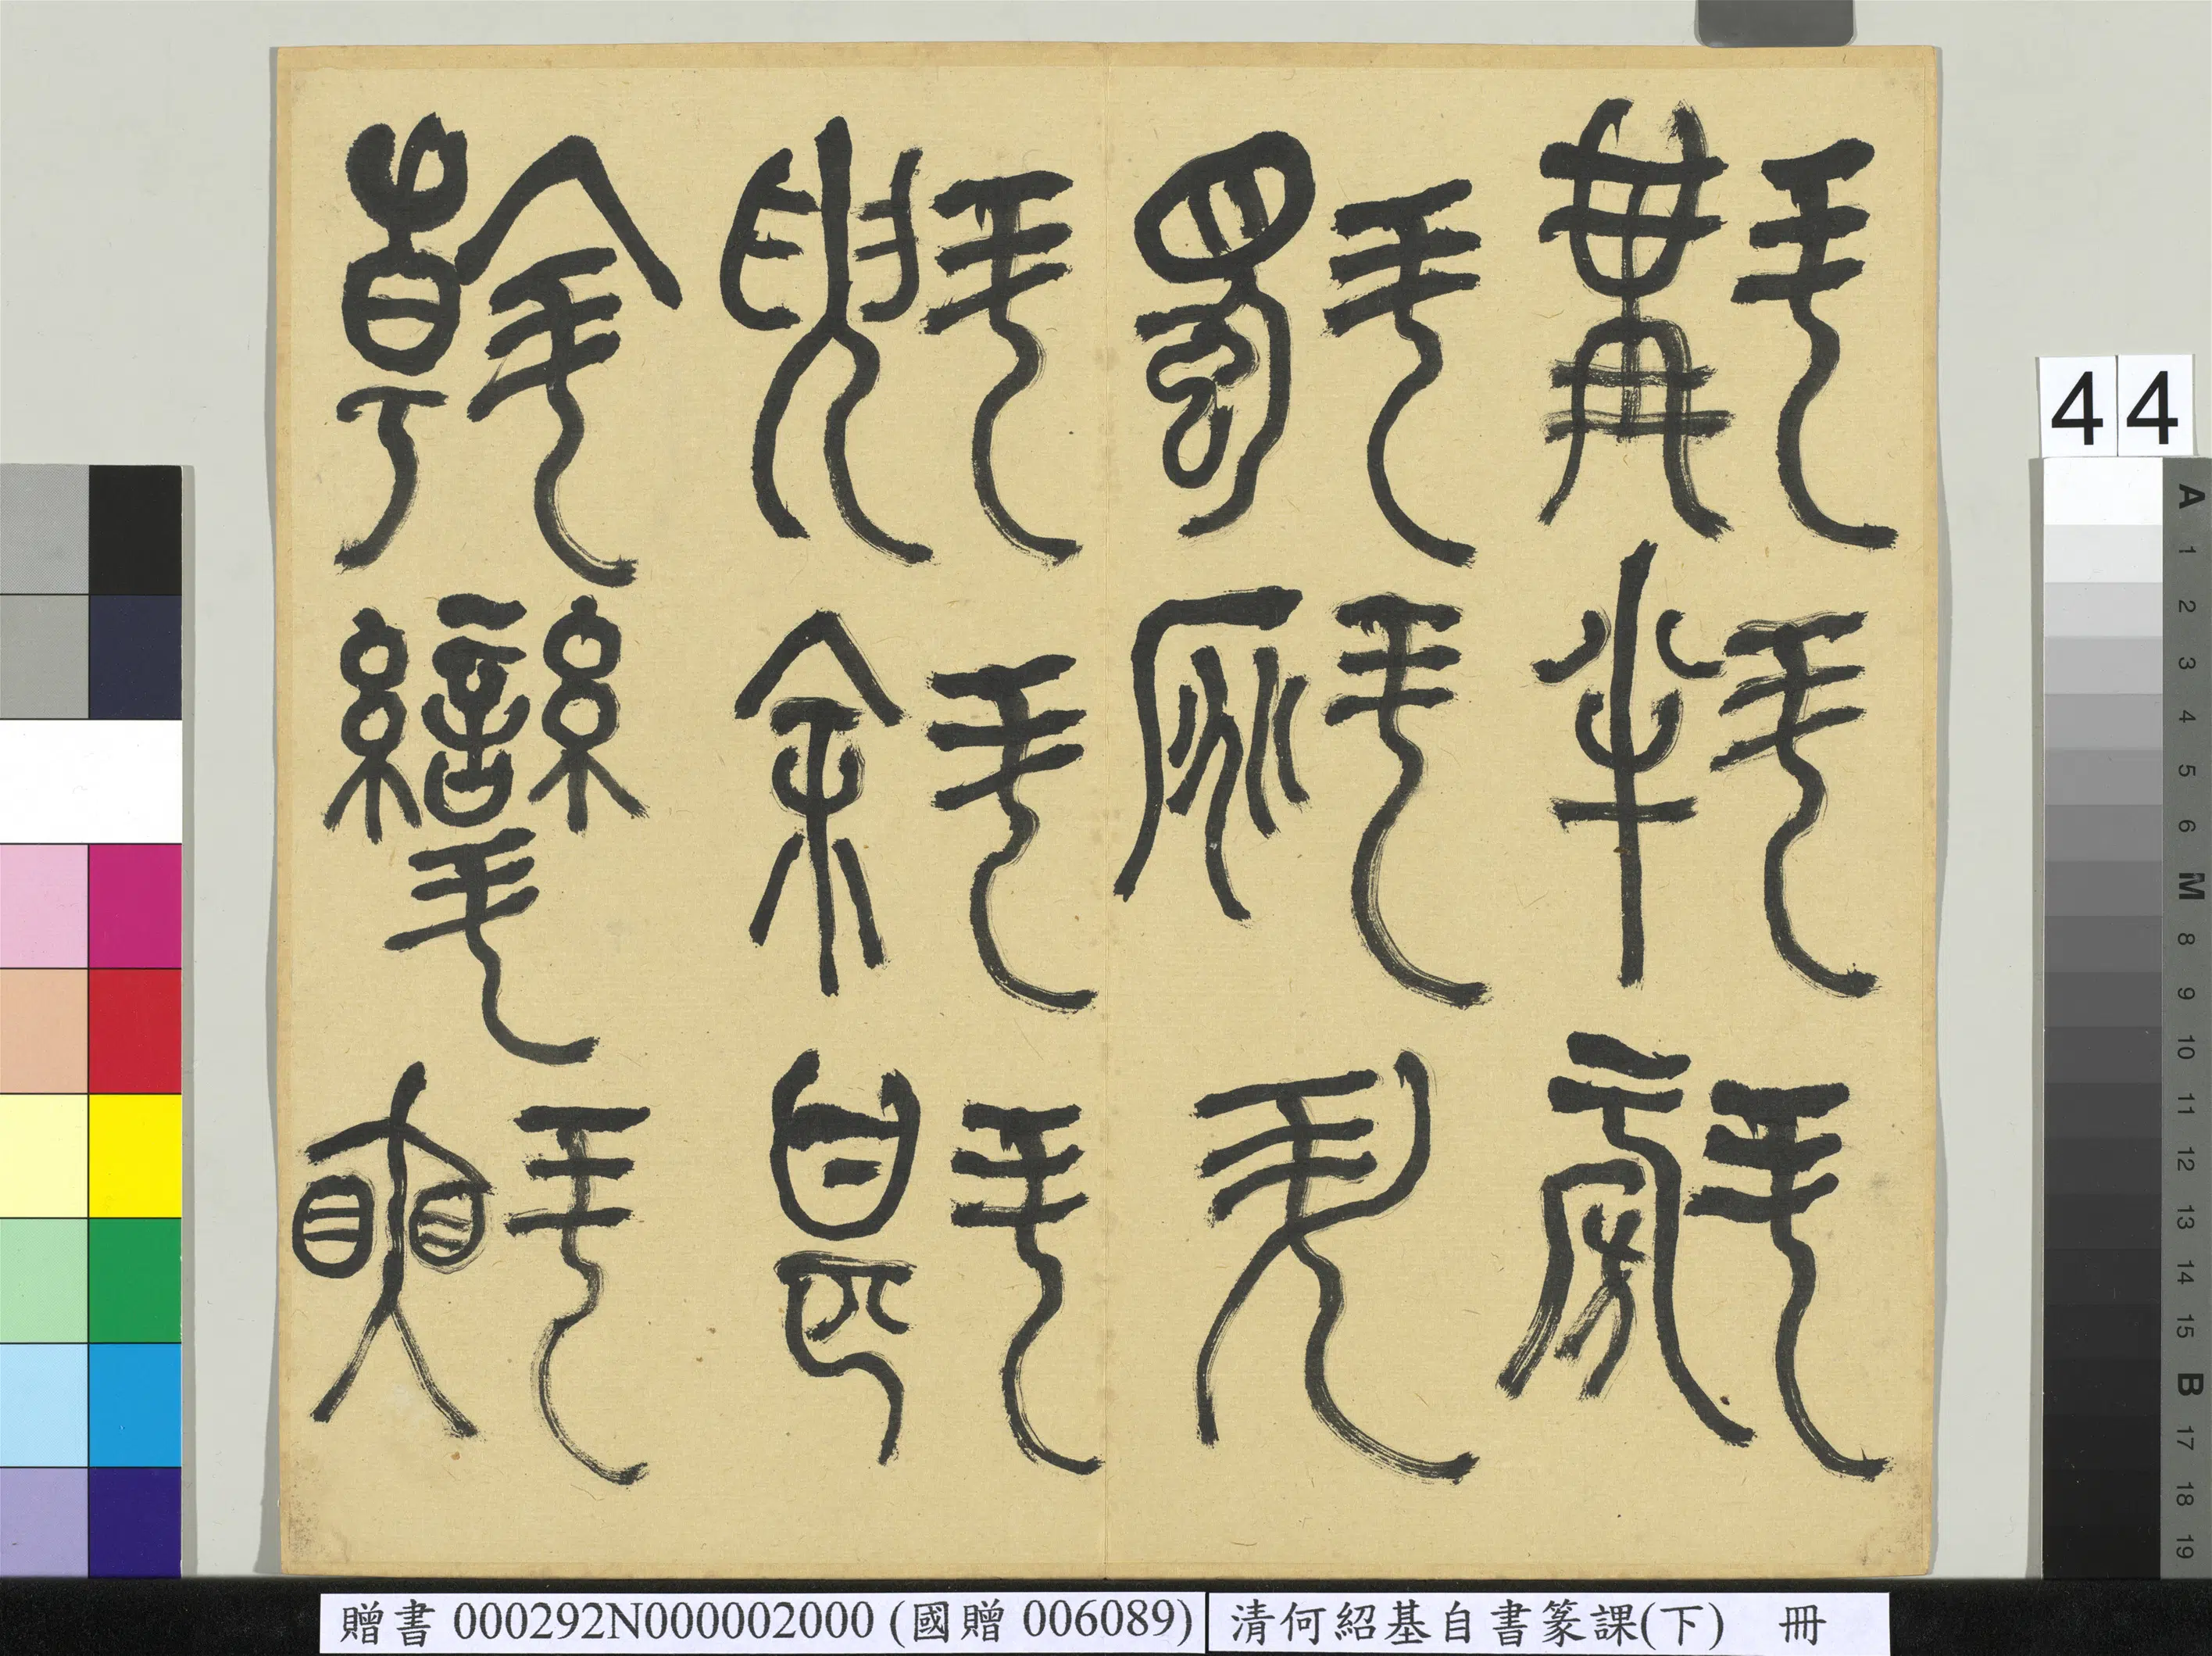 斠㪵㪶
斣𣂁升
斞斜斟
斡㪻㪺
44
A 1 2 3 4 5 6 M 8 9 10 11 12 13 14 15 B 17 18 19
贈書 000292N000002000 (國贈 006089)
清何紹基自書篆課(下) 冊